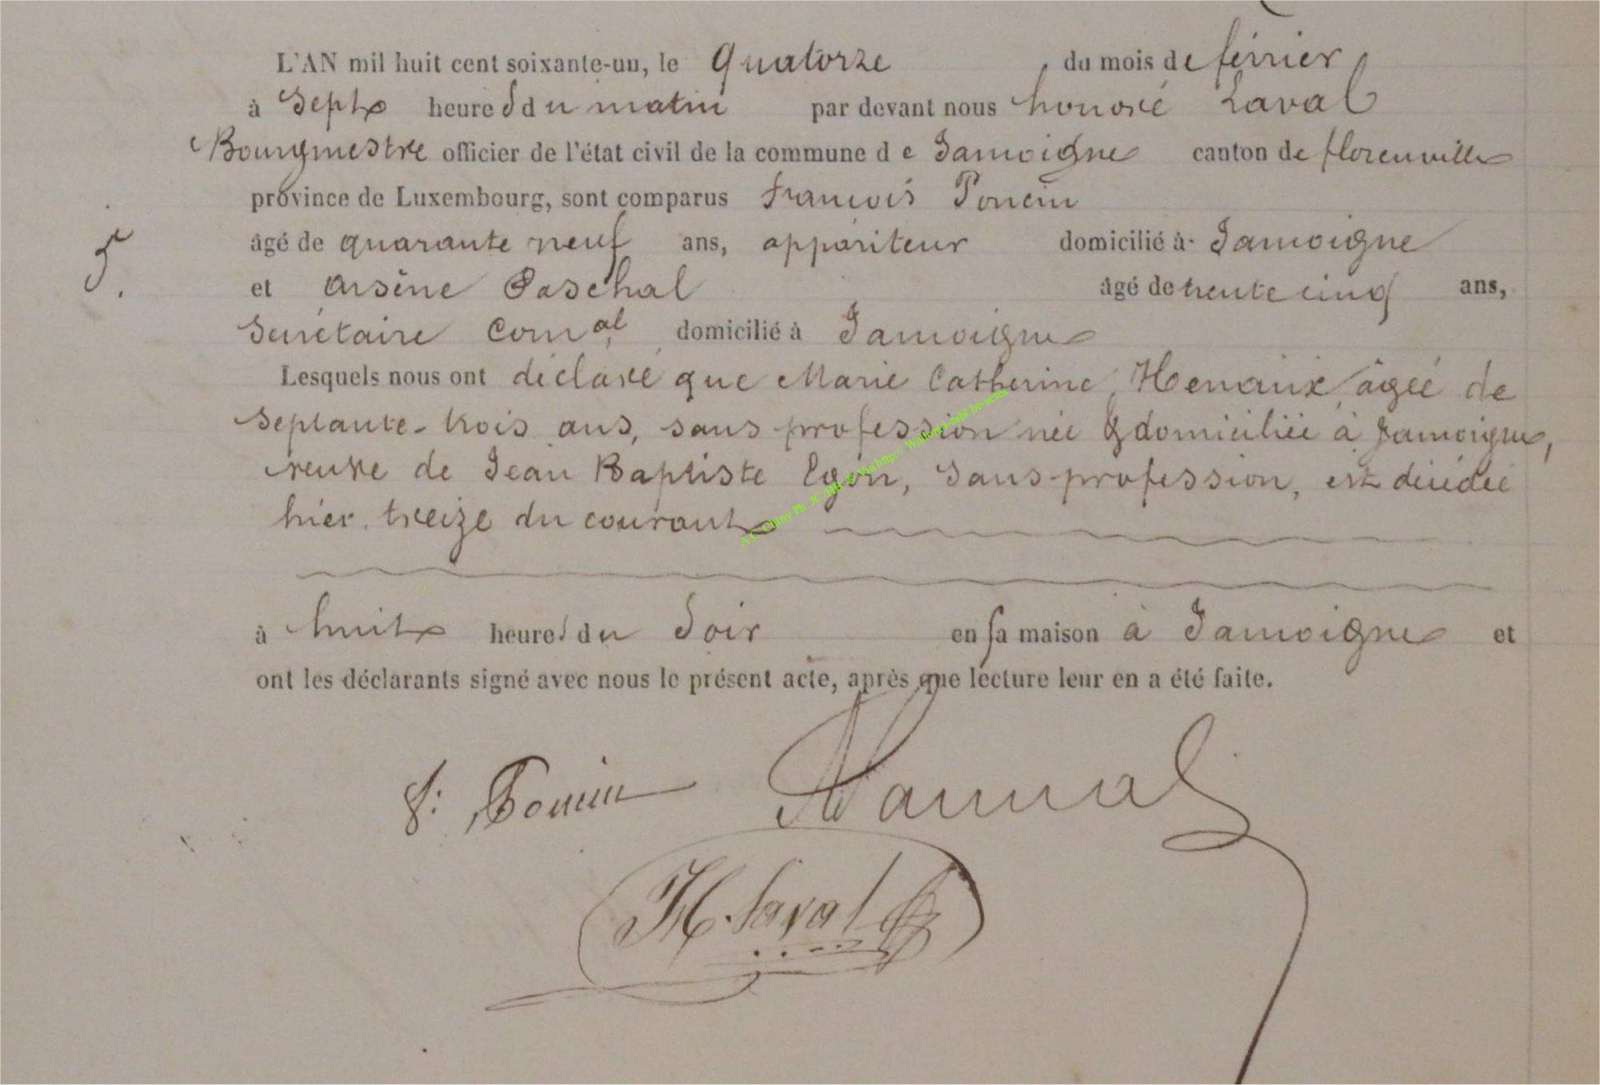 L'AN mil huit cent soixante-un, le quatorze du mois de février
à sept heures du matin par devant nous honoré Laval
Bourgmestre officier de l'état civil de la commune de Jamoigne canton de florenville
province de Luxembourg, sont comparus françois Poncin
âgé de quarante neuf ans, appariteur domicilié à Jamoigne
5.
et Arsène Paschal âgé de trente cinq ans,
Secrétaire Com.al domicilié à Jamoigne
Lesquels nous ont déclaré que Marie Catherine Henaux, âgée de
septante-trois ans, sans profession née & domiciliée à Jamoigne,
veuve de Jean Baptiste Egon, sans profession, est décédée
hier, treize du courant
à huit heures du soir en sa maison à Jamoigne et
ont les déclarants signé avec nous le présent acte, après que lecture leur en a été faite.
f: Poncin
H Laval